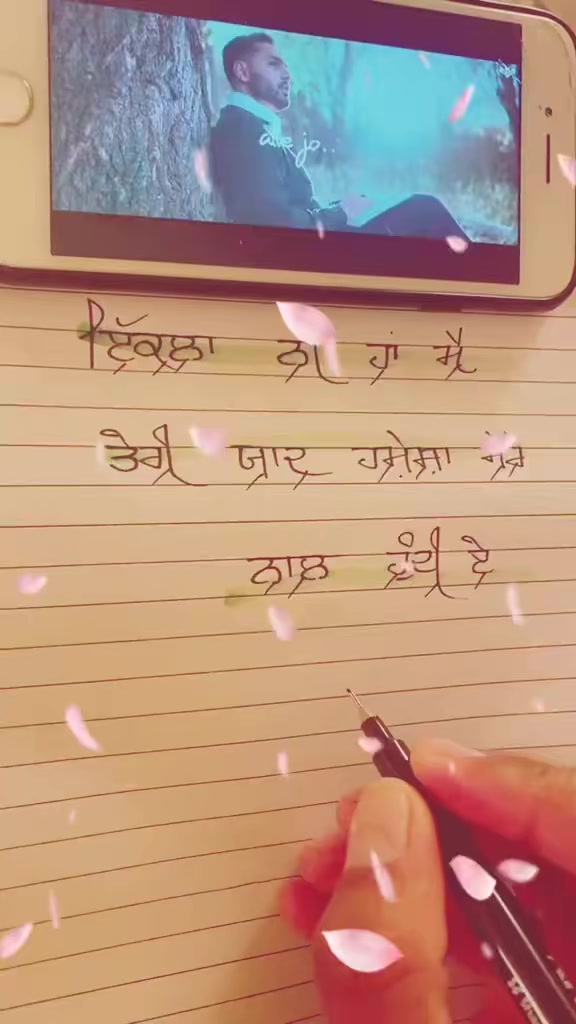 are jo..
ਇੱਕਲਾ ਨੀ ਹਾਂ ਮੈ
ਤੇਰੀ ਯਾਦ ਹਮੇਸ਼ਾ ਮੇਰੇ
ਨਾਲ ਹੁੰਦੀ ਏ